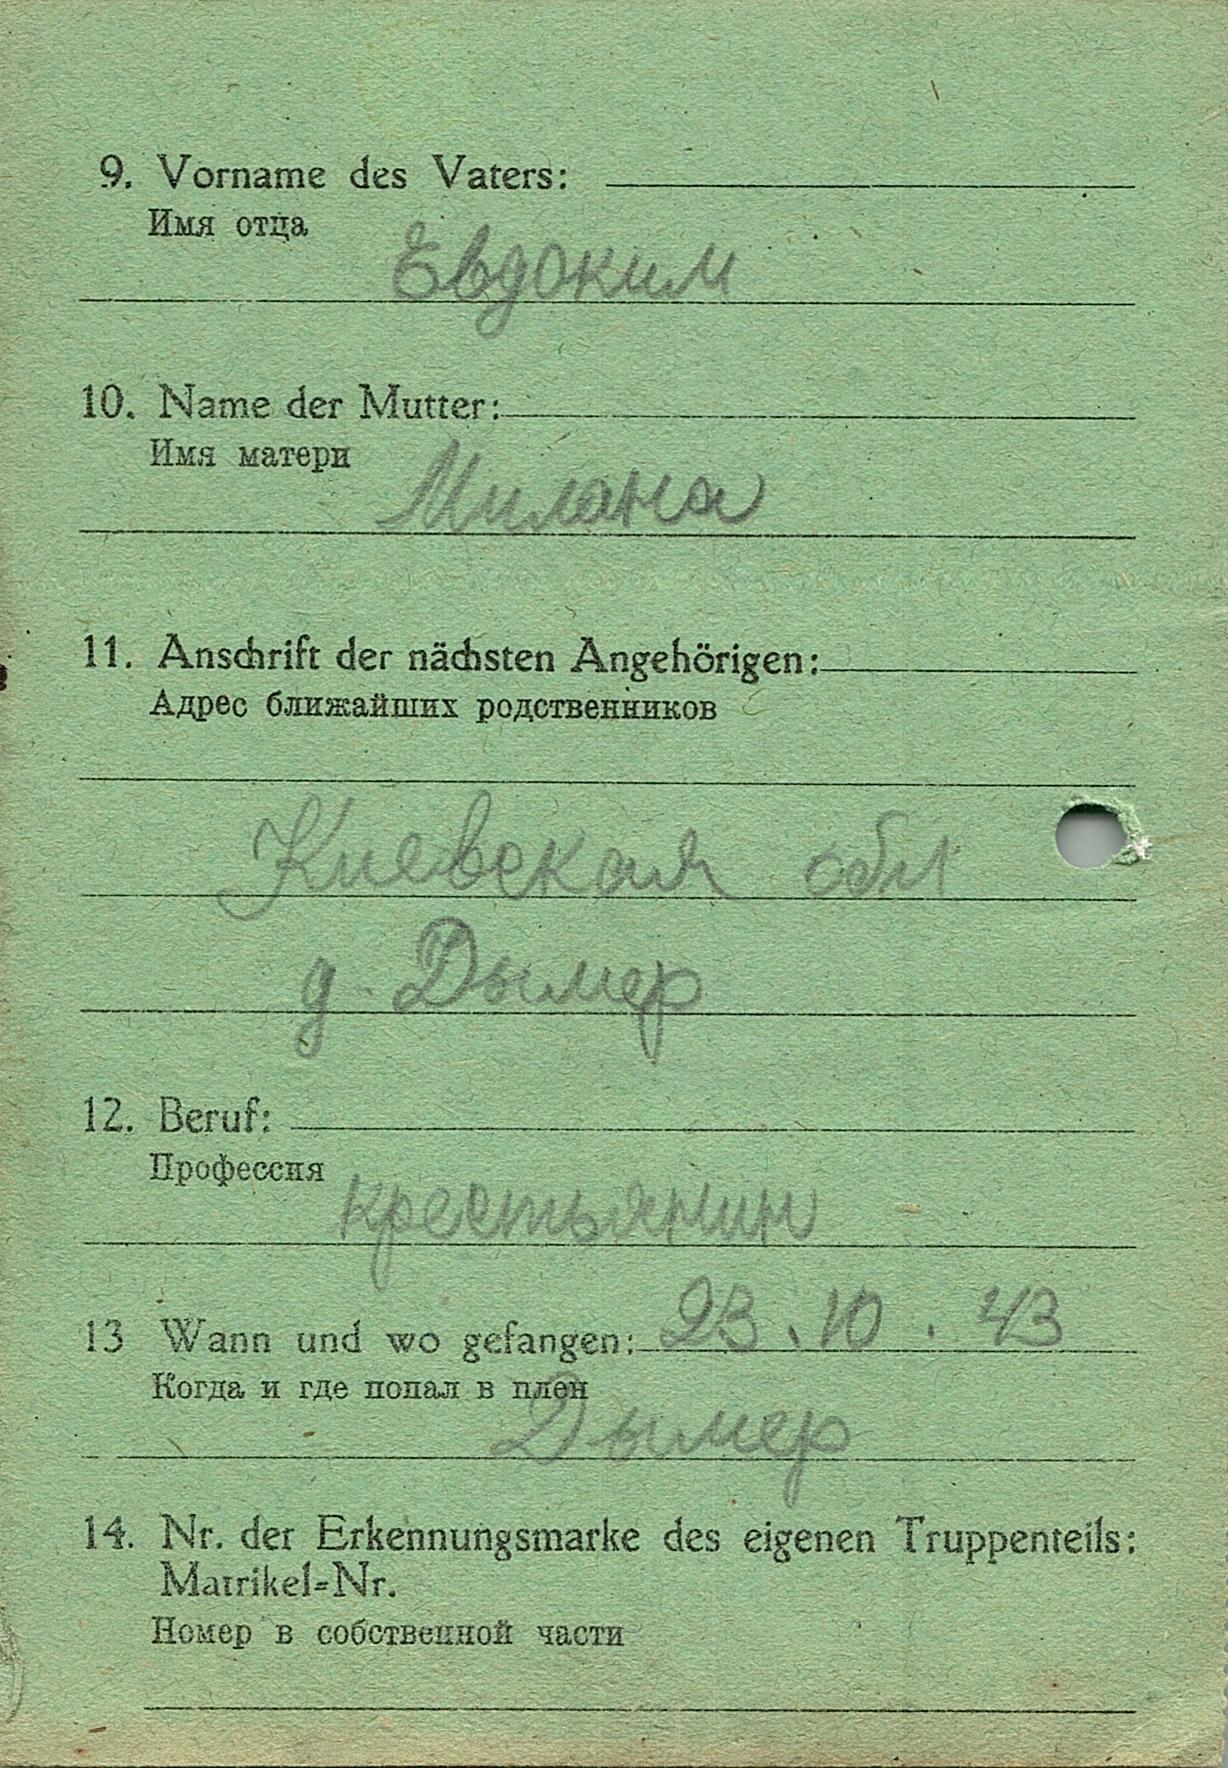 9. Vorname des Vaters:
Имя отца
Евдоким
10. Name der Mutter:
Имя матери
Милана
11. Anschrift der nächsten Angehörigen:
Адрес ближайших родственников
Киевская обл
д. Дымер
12. Beruf:
Профессия
крестьянин
13 Wann und wo gefangen: 23.10.43
Когда и где попал в плен
Дымер
14. Nr. der Erkennungsmarke des eigenen Truppenteils:
Matrikel=Nr.
Номер в собственной части